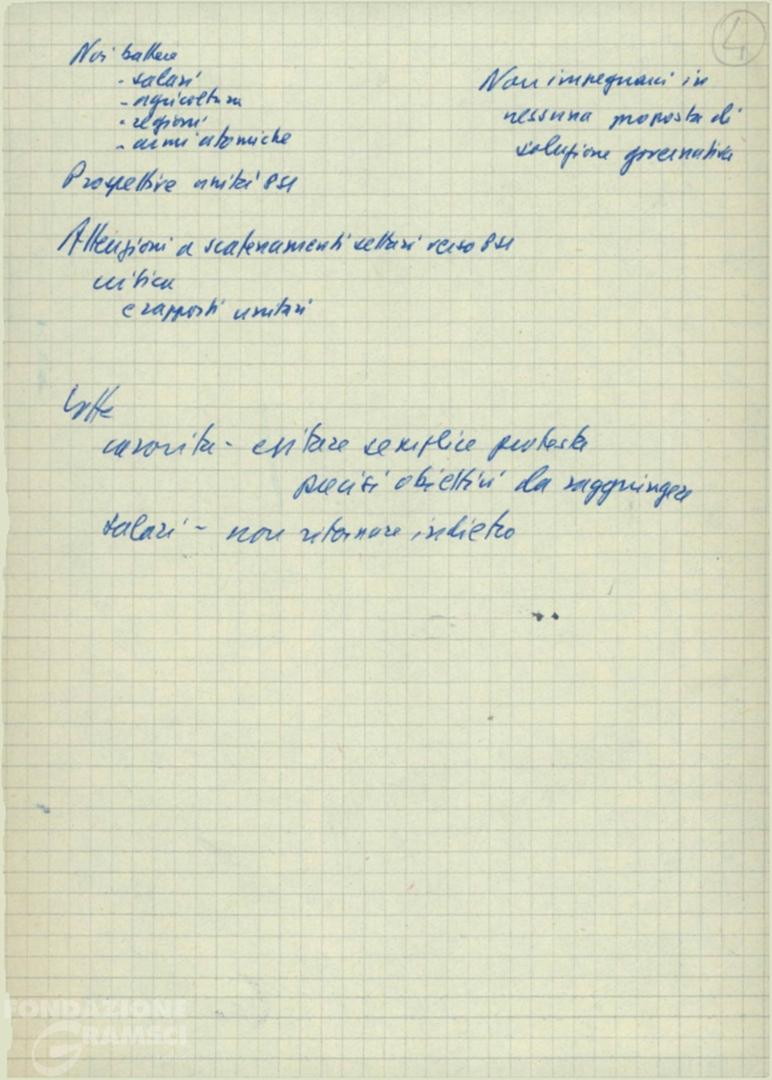 4
Noi battere
- salari
- agricoltura
- regioni
- armi atomiche
Non impegnarci in
nessuna proposta di
soluzione governativa
Prospettive unità PSI
Attenzioni a scatenamenti settari verso PSI
critica
e rapporti unitari
Lotte
carovita - evitare semplice protesta
precisi obiettivi da raggiungere
salari - non ritornare indietro
FONDAZIONE
GRAMSCI